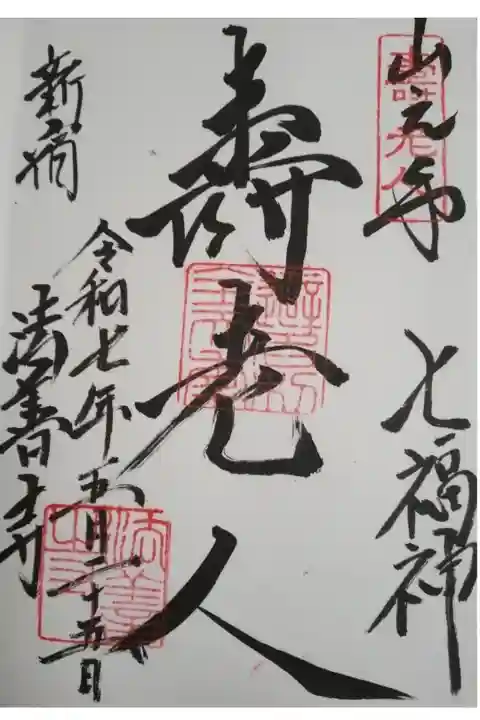 山之手
七福神
壽老人
壽老人
令和七年五月二十五日
新宿
法善寺